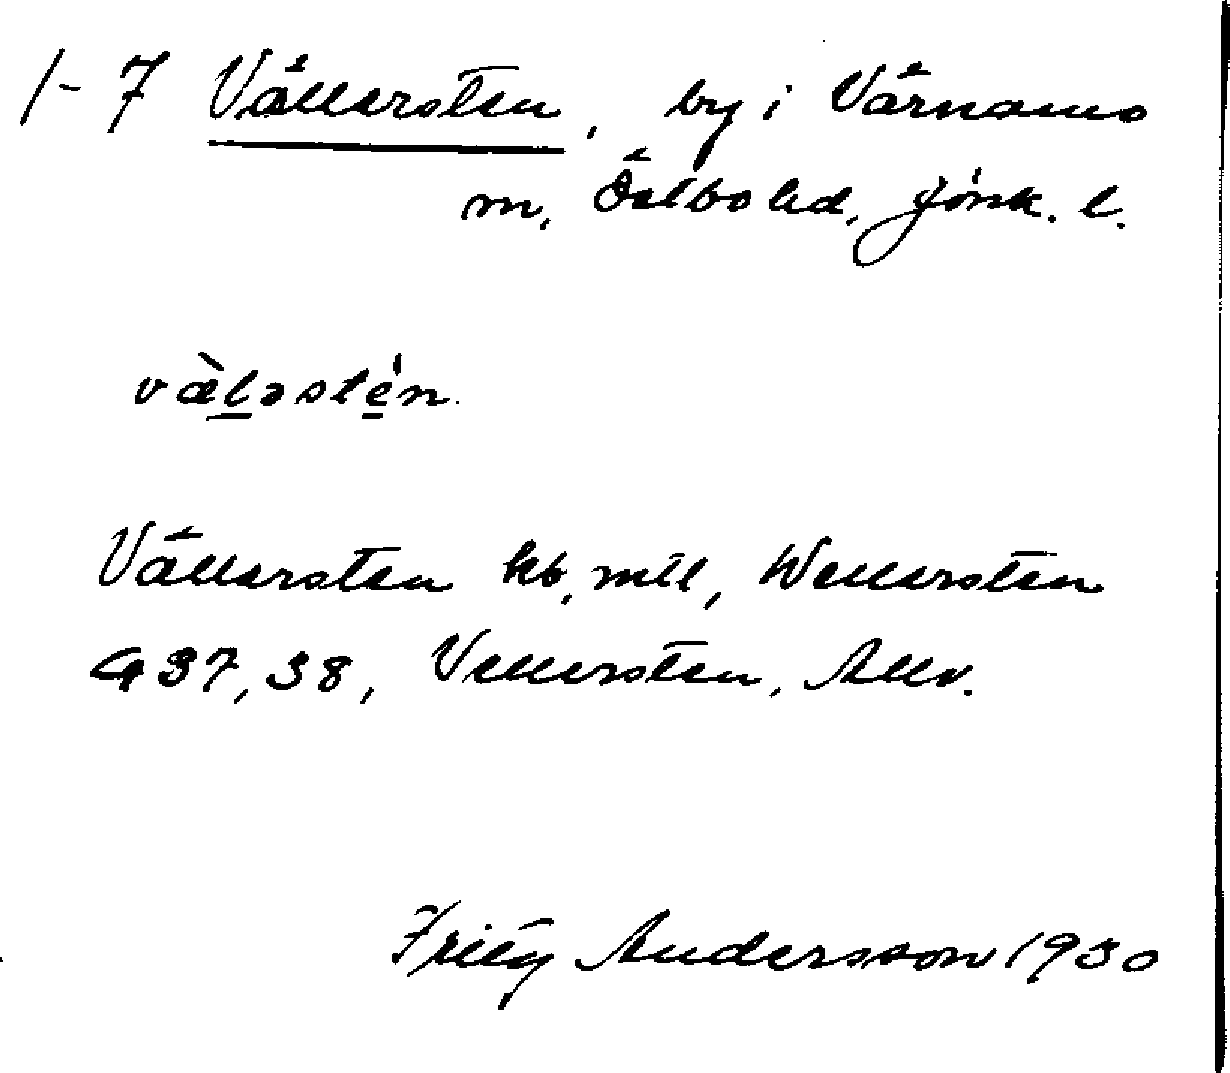 1-7 Vällersten, by i Värnamo
m, Östbo hd, Jönk. l.
væ̀ləstén.
Vällersten kb, mtl, Wellersten
G 37, 38, Vellersten, Allv.
Fritz Andersson 1930